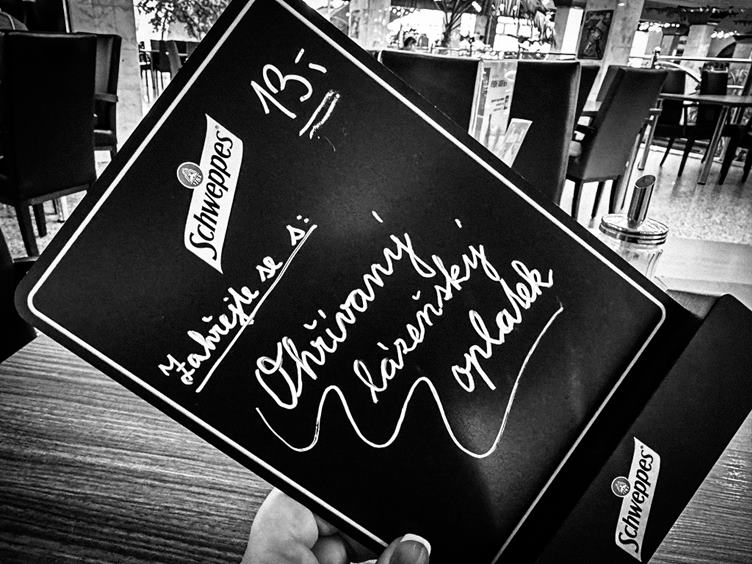 Schweppes®
13,-
Zahřejte se s:
Ohřívaný
lázeňský
oplatek
Schweppes®